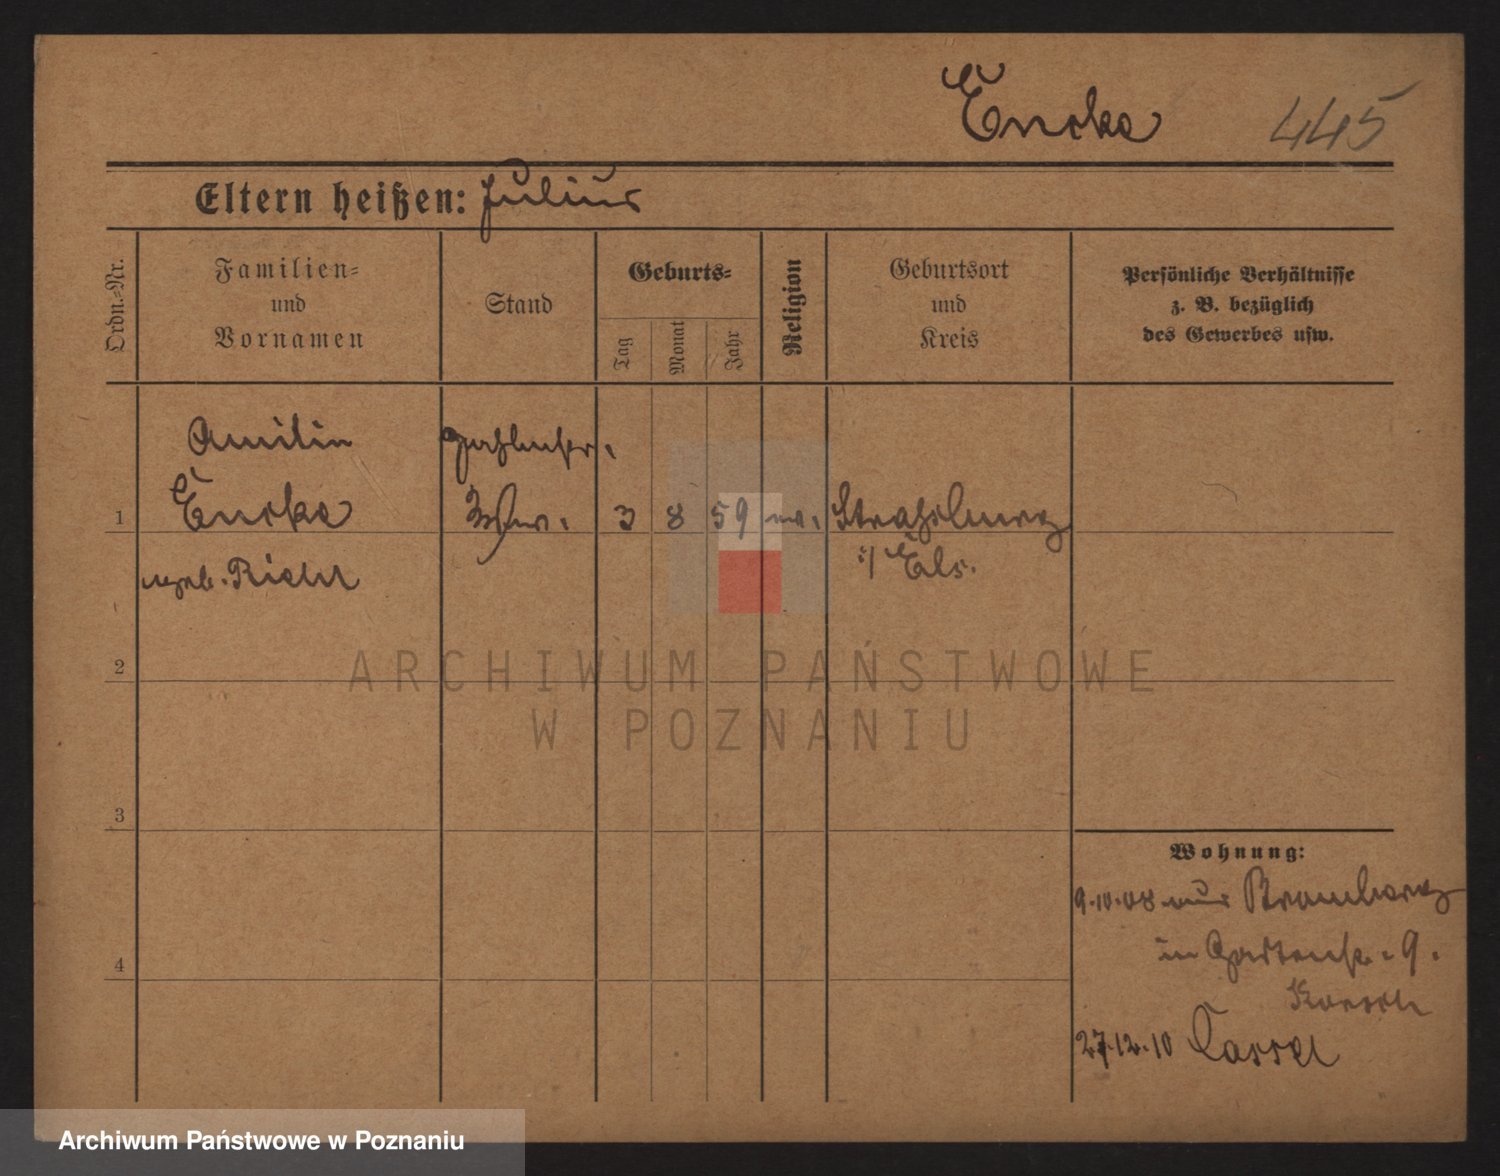 Encke 445
Eltern heißen: Julius
Ordn.=Nr.
Familien=
und
Vornamen
Stand
Geburts=
Tag
Monat
Jahr
Religion
Geburtsort
und
Kreis
Persönliche Verhältnisse
z. B. bezüglich
des Gewerbes usw.
Emilie
1 Encke Ww. 3 8 59 ev. Strassburg
geb. Riehl i/ Els.
2
3
4
Wohnung:
9.10.08 aus Bromberg
in Gartenstr. 9.
27.12.10 Cassel
ARCHIWUM PAŃSTWOWE
W POZNANIU
Archiwum Państwowe w Poznaniu